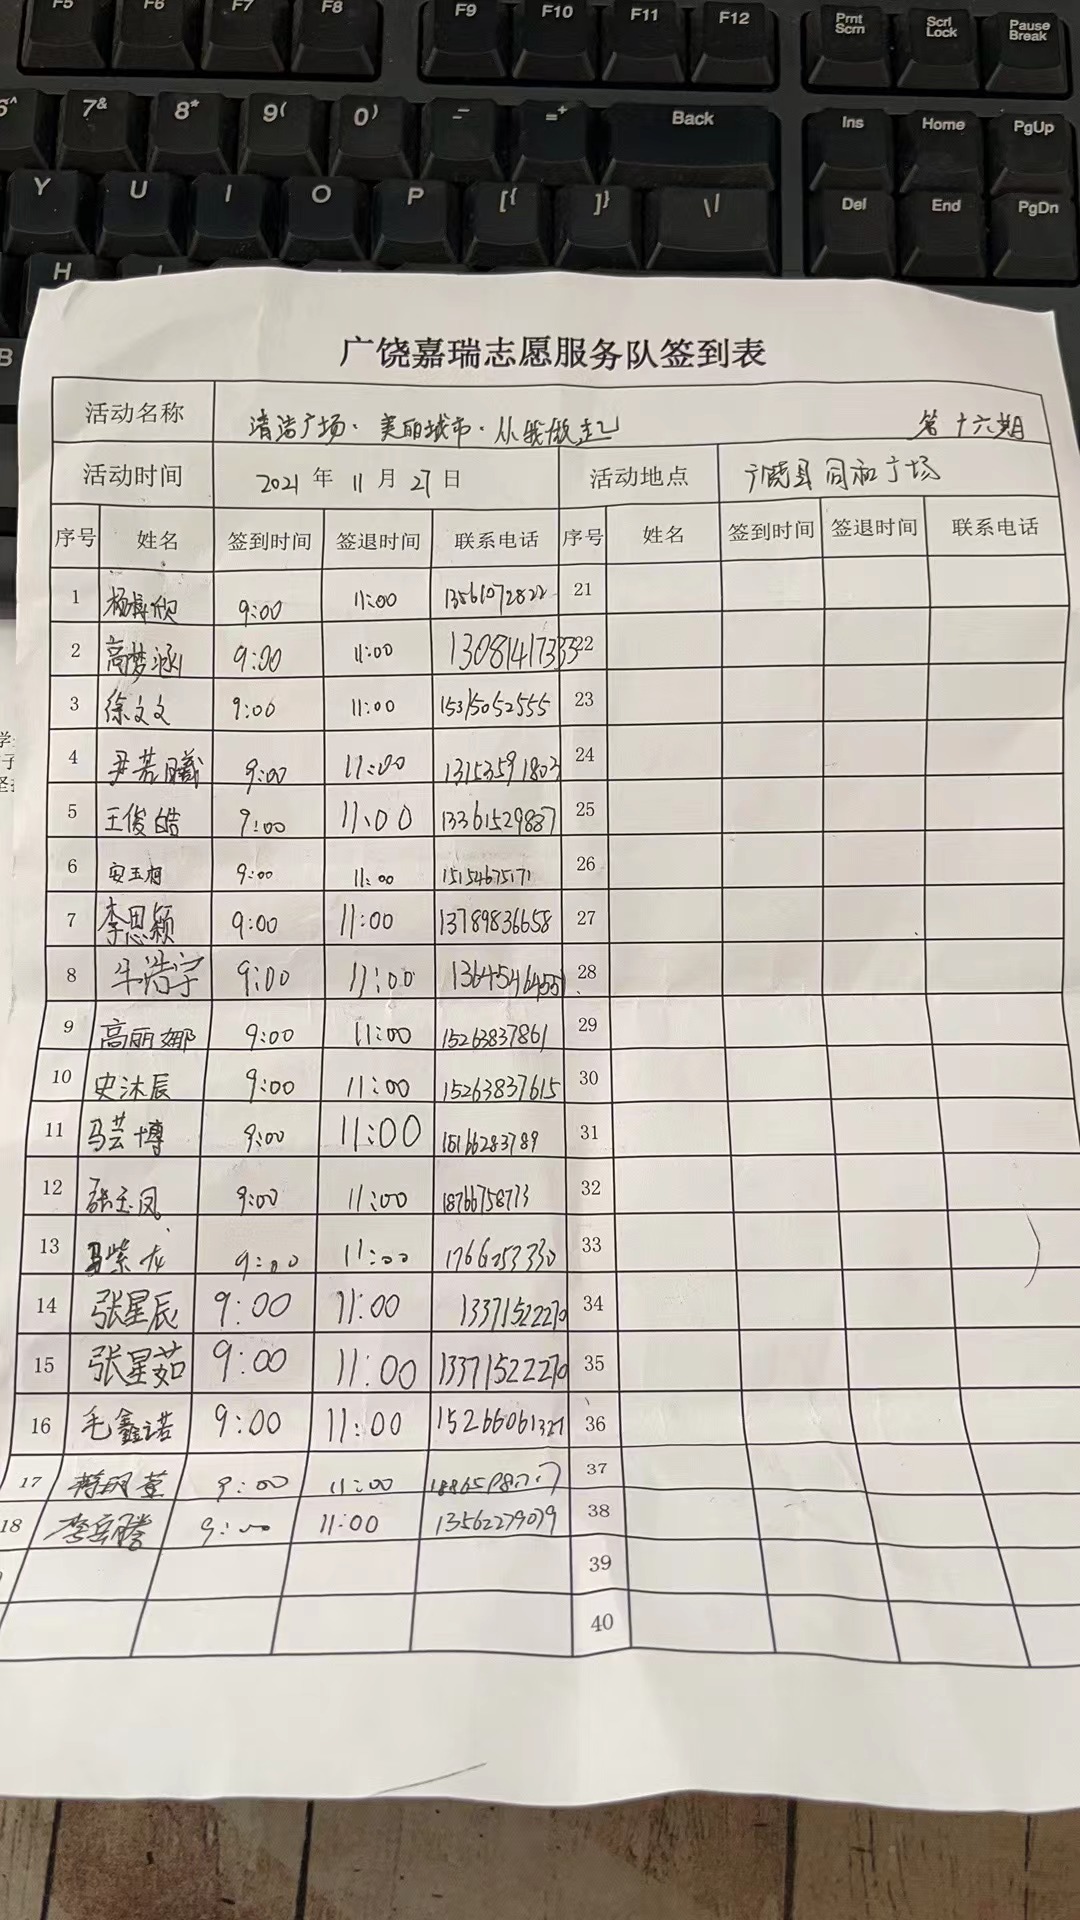 F5 F6 F7 F8 F9 F10 F11 F12 Prnt Scrn Scrl Lock Pause Break
6^ 7& 8* 9( 0) -_ =+ Back Ins Home PgUp
Y U I O P [{ ]} \| Del End PgDn
H
B
广饶嘉瑞志愿服务队签到表
活动名称 清洁广场·美丽城市·从我做起 第十六期
活动时间 2021年11月27日 活动地点 广饶县同和广场
序号 姓名 签到时间 签退时间 联系电话 序号 姓名 签到时间 签退时间 联系电话
1 9:00 11:00 13561072822 21
2 高梦涵 9:00 11:00 13081417333 22
3 徐文文 9:00 11:00 15315052555 23
4 尹若曦 9:00 11:00 13153591803 24
5 王俊皓 9:00 11:00 13361529887 25
6 安玉柯 9:00 11:00 15154675171 26
7 李思颖 9:00 11:00 13789836658 27
8 牛浩宇 9:00 11:00 28
9 高丽娜 9:00 11:00 15263837861 29
10 史沐辰 9:00 11:00 15263837615 30
11 马芸博 9:00 11:00 15166283789 31
12 张玉凤 9:00 11:00 18766758773 32
13 马紫龙 9:00 11:00 33
14 张星辰 9:00 11:00 13371522270 34
15 张星茹 9:00 11:00 13371522270 35
16 毛鑫诺 9:00 11:00 15266061327 36
17 9:00 11:00 37
18 9:00 11:00 13562279079 38
39
40